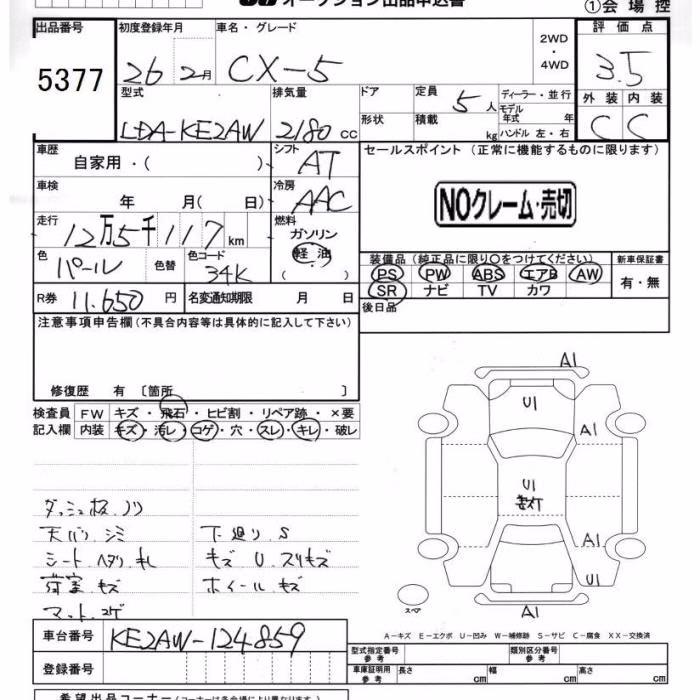 オークション出品申込書
①会場控
出品番号 初度登録年月 車名・グレード 評価点
5377 26年 2月 CX-5 2WD・4WD 3.5
型式 排気量 ドア 定員 ディーラー・並行 外装 内装
LDA-KE2AW 2180 cc 5人 モデル年式 年 C C
形状 積載 kg ハンドル 左・右
車歴 シフト セールスポイント (正常に機能するものに限ります)
自家用・( ) AT
車検 冷房
年 月( 日) AAC NOクレーム・売切
走行 燃料
12万5千117km ガソリン
軽油
( )
色 色替 色コード
パール 34K
装備品(純正品に限り○をつけてください) 新車保証書
PS PW ABS エアB AW 有・無
SR ナビ TV カワ
R券 11,650 円 名変通知期限 月 日
後日品
注意事項申告欄(不具合内容等は具体的に記入して下さい)
修復歴 有 〔箇所 〕
検査員 FW キズ・飛石・ヒビ割・リペア跡・×要
記入欄 内装 キズ・汚レ・コゲ・穴・スレ・キレ・破レ
ダッシュ板ノリ
天バリ シミ 下廻り S
シート ヘタリ キレ キズ U スリキズ
荷室 キズ ホイール キズ
マット コゲ
A1
U1
A1
U1
A1
U1
A1
スペア
A-キズ E-エクボ U-凹み W-補修跡 S-サビ C-腐食 XX-交換済
車台番号 KE2AW-124859
型式指定番号 参考 類別区分番号 参考
登録番号
車庫証明用 参考 長さ cm 幅 cm 高さ cm
希望出品コーナー(コーナーは各会場により異なります)